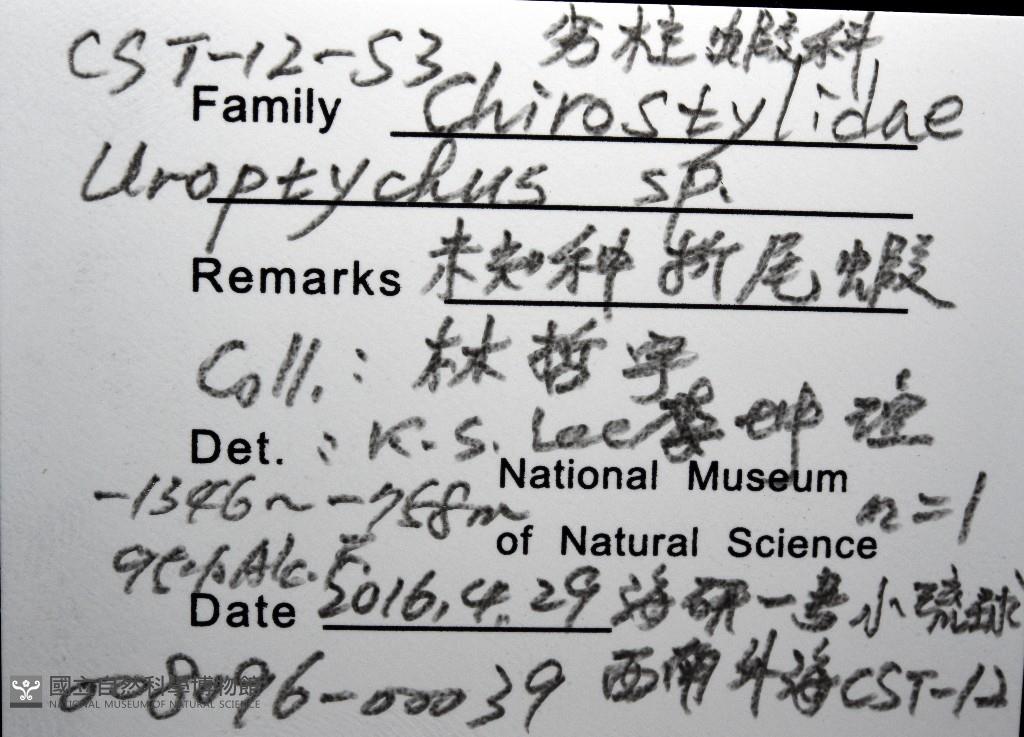 CST-12-S3 劣柱蝦科
Family Chirostylidae
Uroptychus sp.
Remarks 未知种 折尾蝦
Coll.: 林哲宇
Det. : K. S. Lee 李坤瑄
National Museum
-1346~-758m n=1
of Natural Science
95% Alc. F.
Date 2016.4.29 海研一号小琉球
西南外海 CST-12
-00039
國立自然科學博物館
NATIONAL MUSEUM OF NATURAL SCIENCE